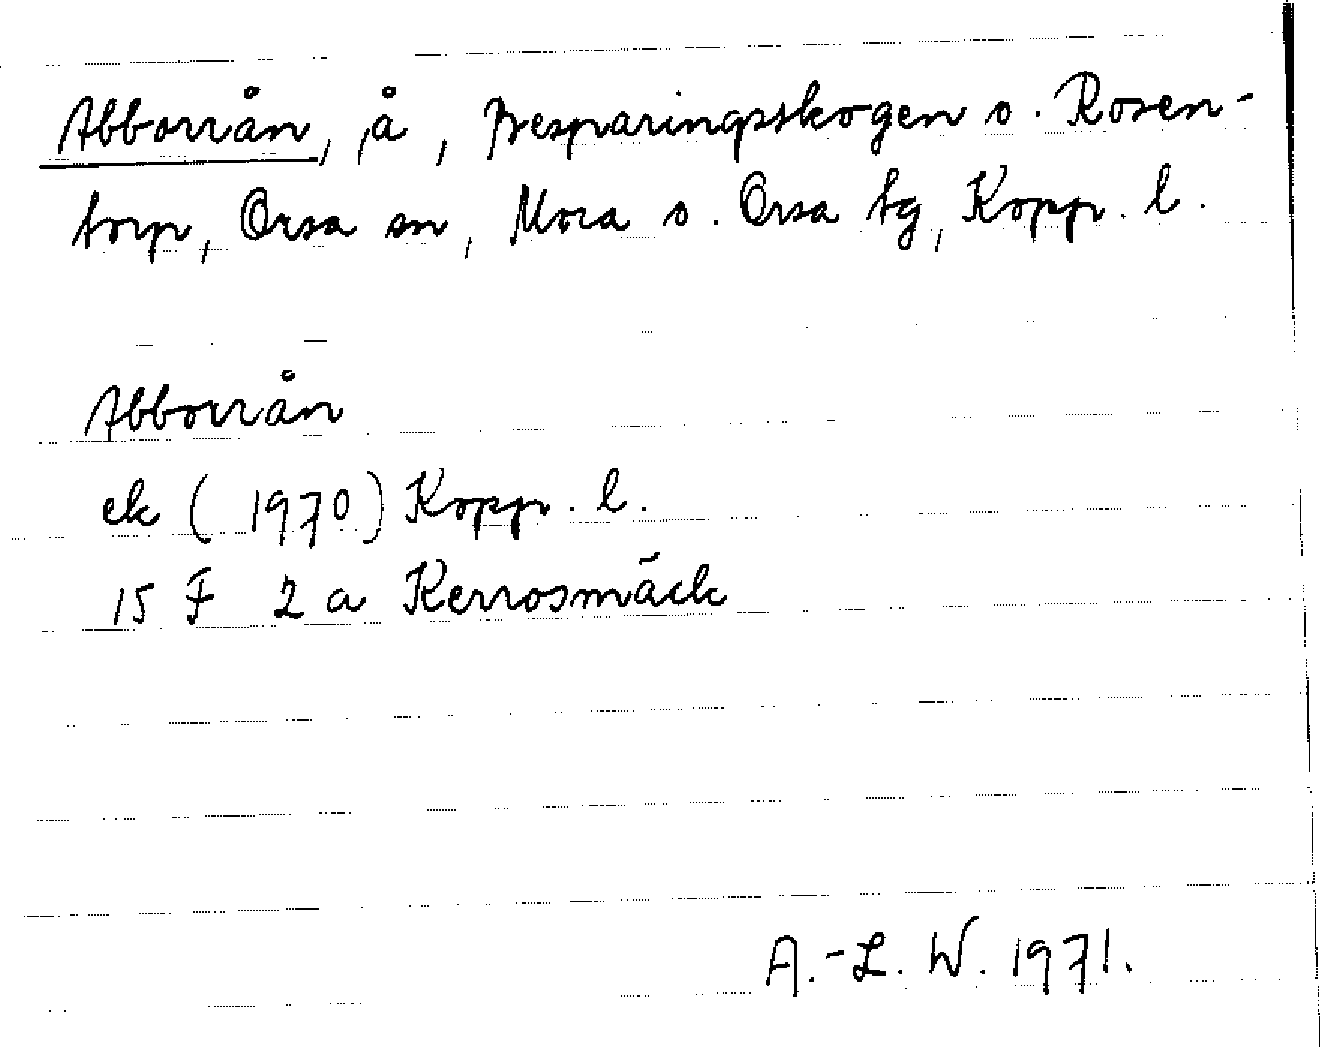 Abborrån, å, Besparingsskogen o. Rosen-
torp, Orsa sn, Mora o. Orsa tg, Kopp. l.
Abborrån
ek (1970) Kopp. l.
15 F 2 a Kerrosmäck
A.-L. W. 1971.